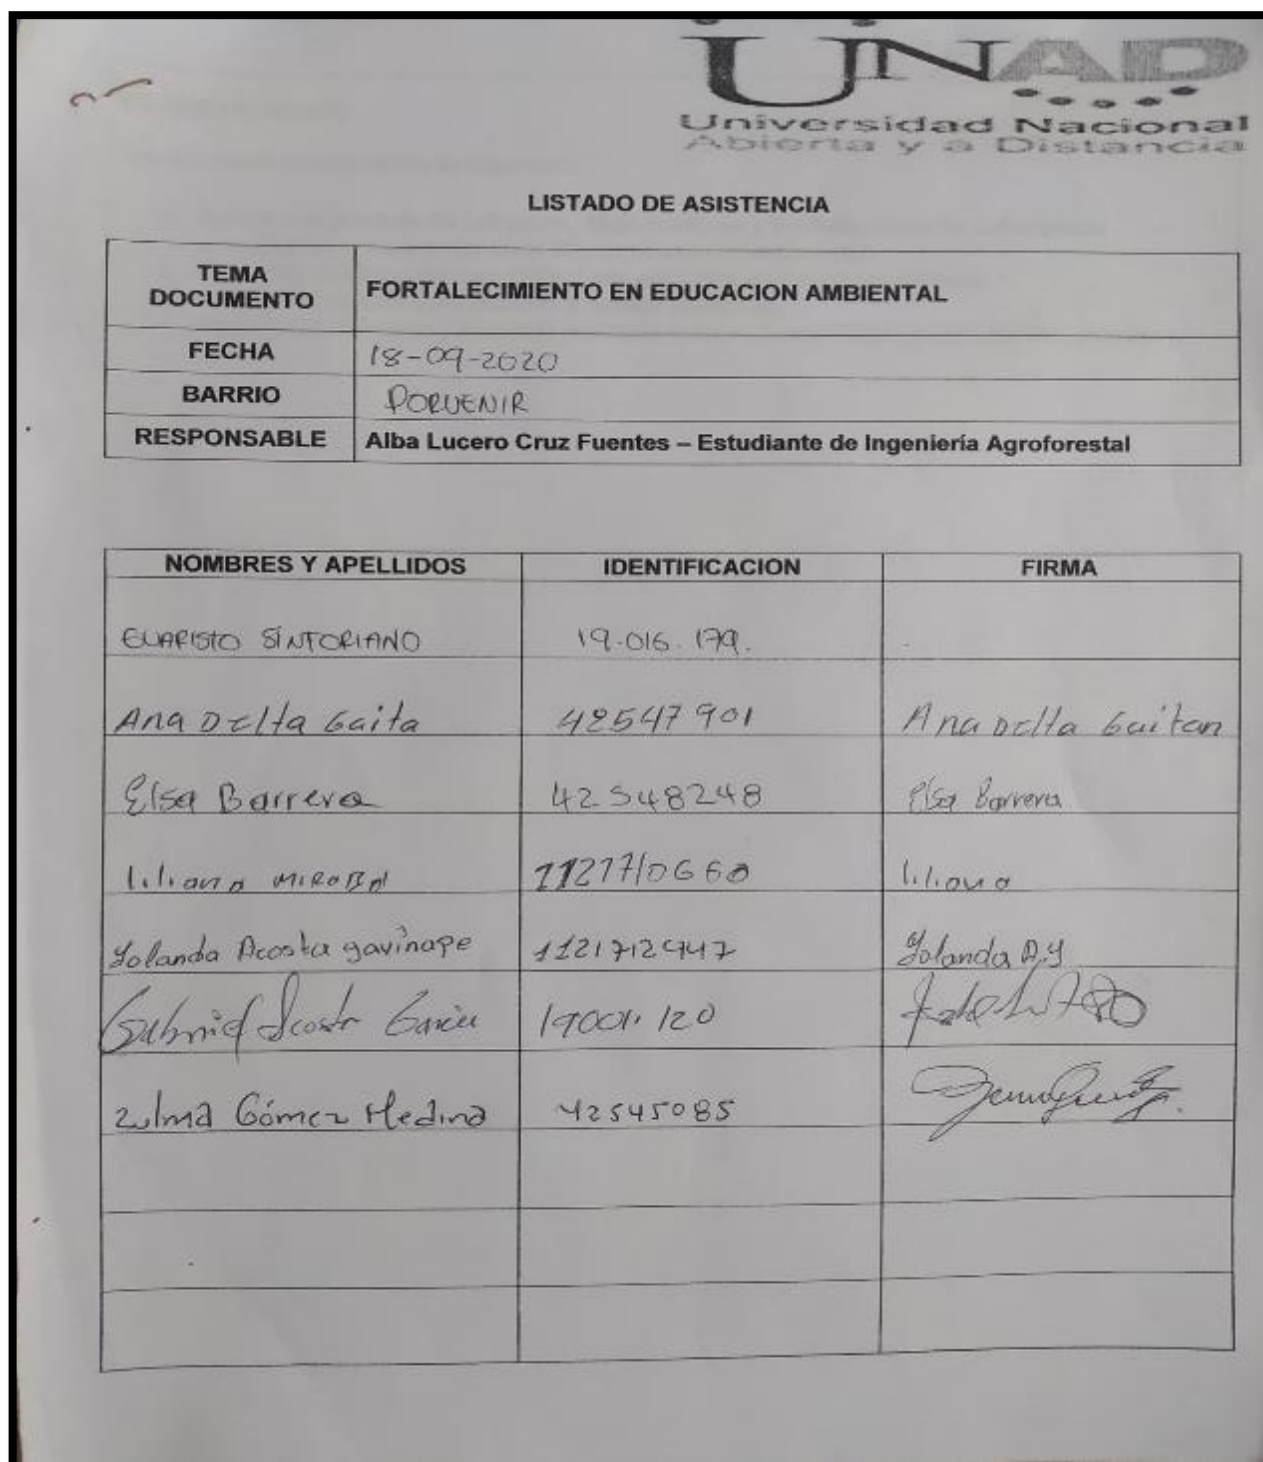 UNAD
Universidad Nacional
Abierta y a Distancia
LISTADO DE ASISTENCIA
TEMA DOCUMENTO FORTALECIMIENTO EN EDUCACION AMBIENTAL
FECHA 18-09-2020
BARRIO PORVENIR
RESPONSABLE Alba Lucero Cruz Fuentes – Estudiante de Ingeniería Agroforestal
NOMBRES Y APELLIDOS IDENTIFICACION FIRMA
EVARISTO SINTORIANO 19.016.179.
Ana Delta Gaita 42547901 Ana Delta Gaitan
Elsa Barrera 42548248 Elsa Barrera
liliana MIRABAl 1121710660 liliana
Yolanda Acosta gavinape 1121712947 Yolanda A.g
Gabriel Acosta Garcia 19001.120
Zulma Gómez Medina 42545085